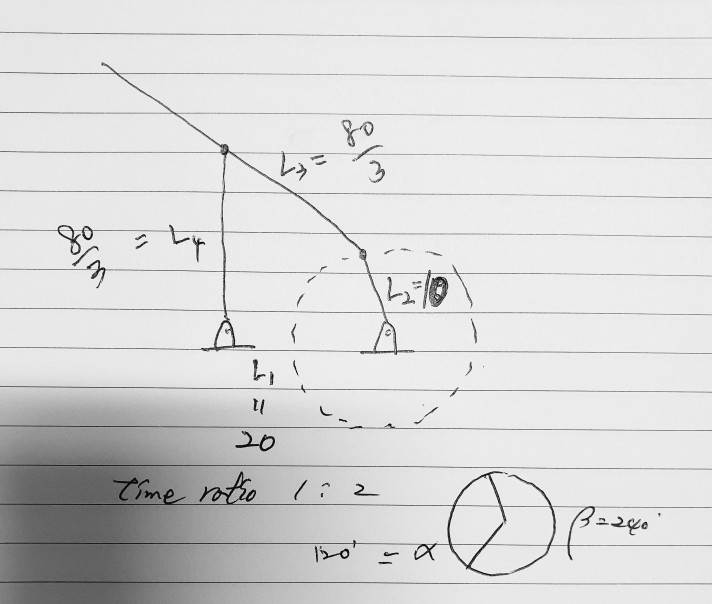 L₃ = 80/3
80/3 = L₄
L₂=10
L₁
"
20
time ratio 1 : 2
120° = α
β=240°